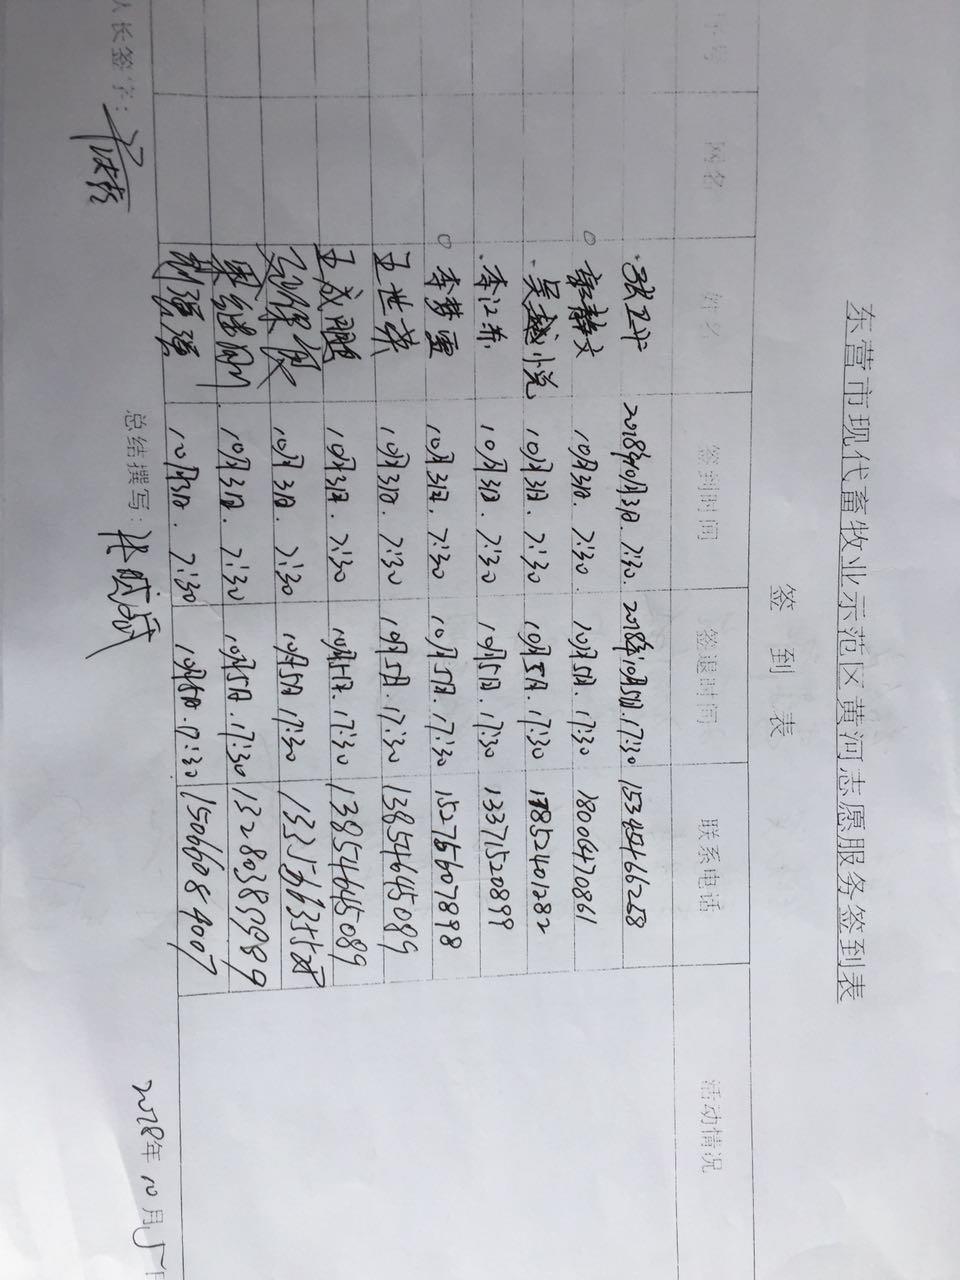 东营市现代畜牧业示范区黄河志愿服务签到表
签 到 表
序号 网名 姓名 签到时间 签退时间 联系电话 活动情况
2018年10月3日.7:30. 2018年10月5日.17:30 15345466258
郭静文 10月3日.7:30. 10月5日.17:30 18006470861
吴越小悦 10月3日.7:30 10月5日.17:30 17852401282
李江苏 10月3日.7:30 10月5日.17:30 13371520899
李梦雪 10月3日.7:30 10月5日.17:30 15276607898
王世英 10月3日.7:30 10月5日.17:30 13854645089
王成鹏 10月3日.7:30 10月5日.17:30 13854645089
10月3日.7:30 10月5日 17:30
10月3日.7:30 10月5日.17:30 13280389989
10月3日.7:30 10月5日.17:30 15066084007
人长签字: 总结撰写: 2018年10月5日